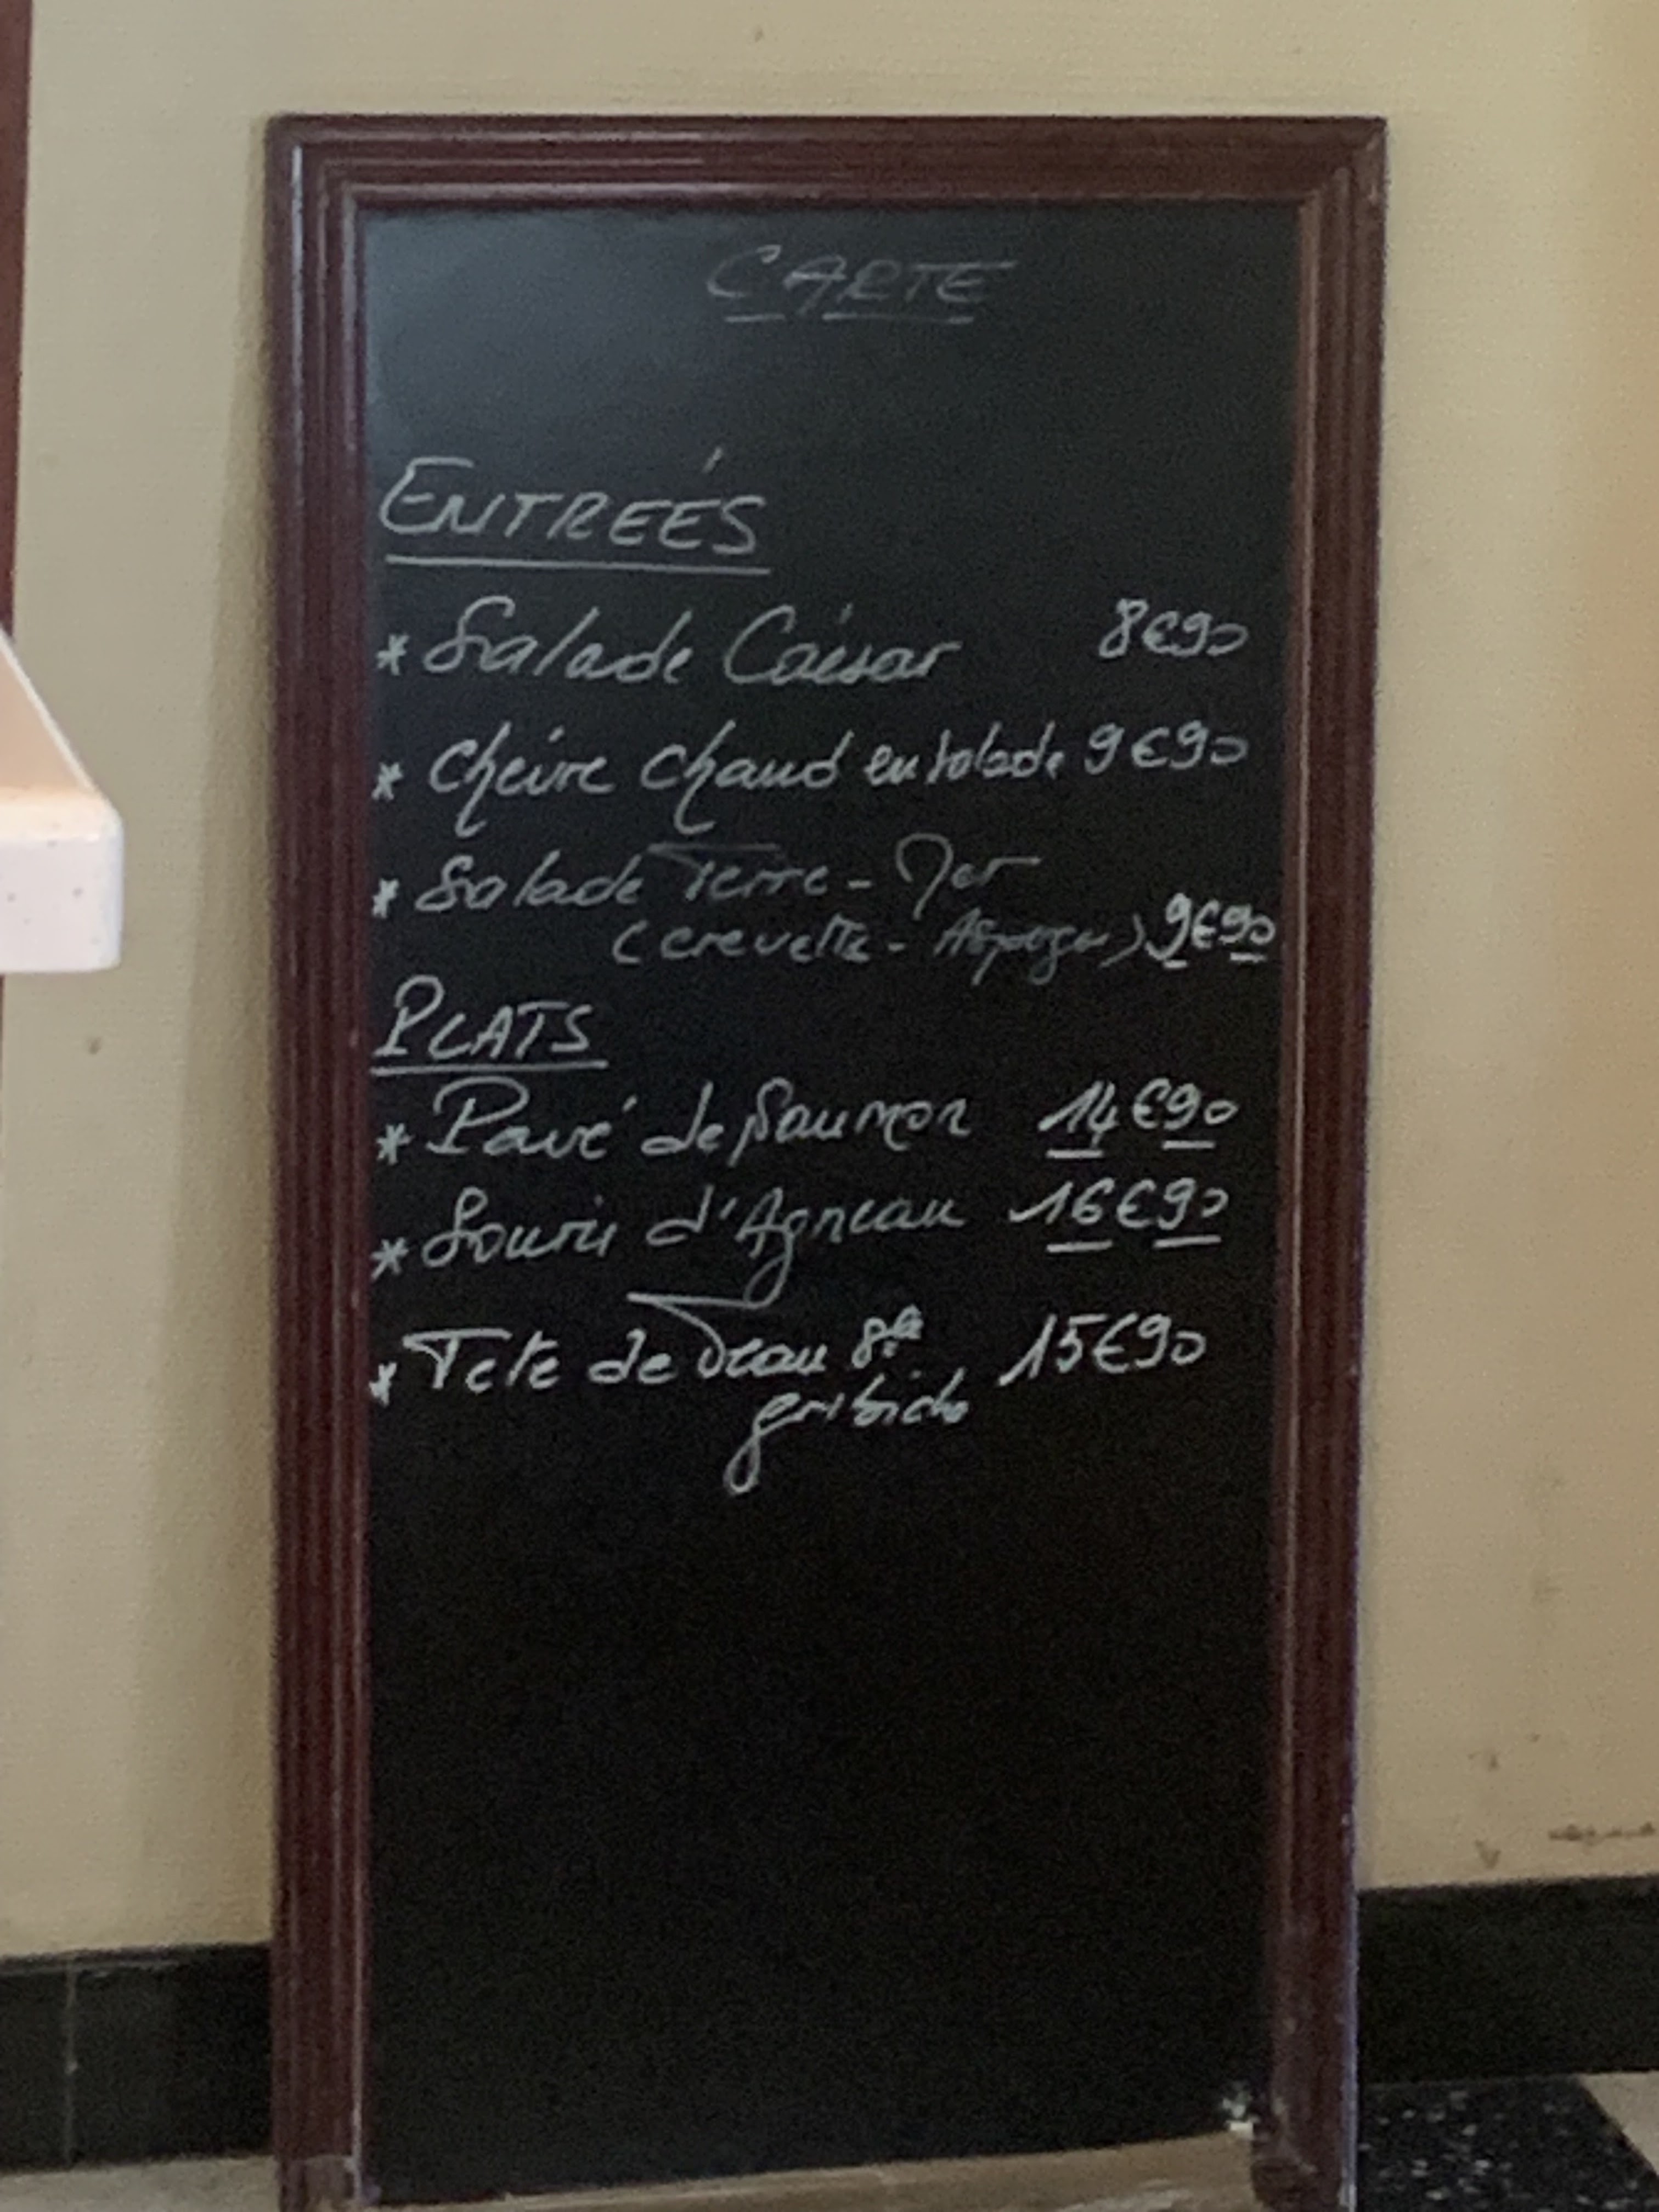 CARTE
ENTREÉS
* Salade Caésar 8€90
* Chèvre Chaud en salade 9€90
* Salade Terre - Mer
(crevette - Asperges) 9€90
PLATS
* Pavé de Saumon 14€90
* Souris d'Agneau 16€90
* Tete de Veau Sce 15€90
gribiche